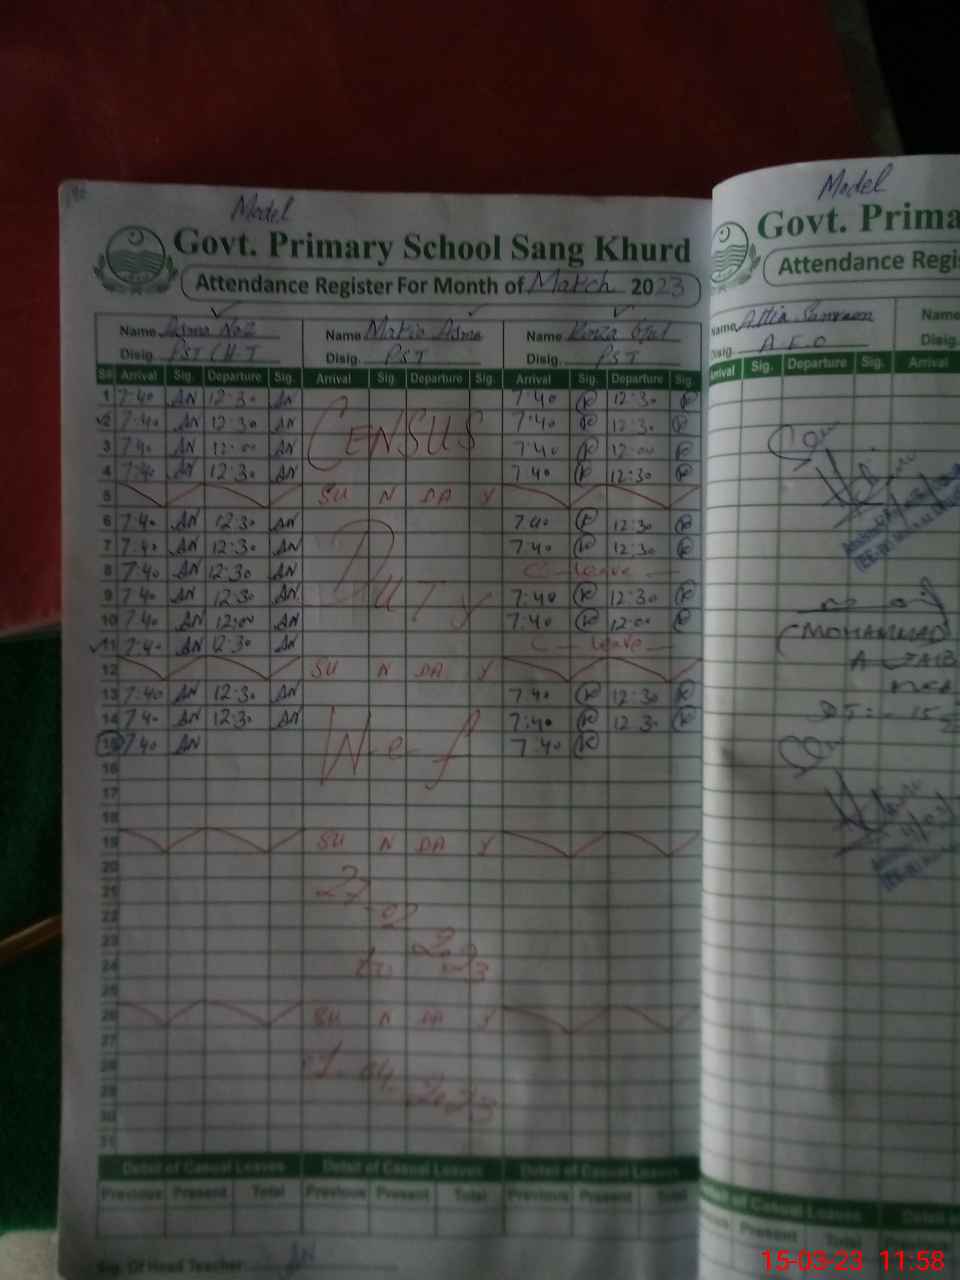 Model
Govt. Primary School Sang Khurd
Attendance Register For Month of March 2023
Name Asma Naz Name Maria Asma Name Kinza Gul
Disig. PST / H.T Disig. PST Disig. PST
S# Arrival Sig. Departure Sig. Arrival Sig. Departure Sig. Arrival Sig. Departure Sig.
1 7:40 AN 12:30 AN 7:40 K 12:30 K
2 7:40 AN 12:30 AN CENSUS 7:40 K 12:30 K
3 7:40 AN 12:00 AN 7:40 K 12:00 K
4 7:40 AN 12:30 AN 7:40 K 12:30 K
5 SU N DA Y
6 7:40 AN 12:30 AN 7:40 K 12:30 K
7 7:40 AN 12:30 AN 7:40 K 12:30 K
8 7:40 AN 12:30 AN Duty C - leave -
9 7:40 AN 12:30 AN 7:40 K 12:30 K
10 7:40 AN 12:00 AN 7:40 K 12:00 K
11 7:40 AN 12:30 AN C - leave -
12 SU N DA Y
13 7:40 AN 12:30 AN 7:40 K 12:30 K
14 7:40 AN 12:30 AN 7:40 K 12:30 K
15 7:40 AN W-e-f 7:40 K
16
17
18
19 SU N DA Y
20
21 27-02
22
23 2023
24 to
25
26 SU N DA Y
27
28 01-04-2023
29
30
31
Detail of Casual Leaves Detail of Casual Leaves Detail of Casual Leaves
Previous Present Total Previous Present Total Previous Present Total
Sig. Of Head Teacher: AN
Model
Govt. Prima
Attendance Regis
Name
Disig. Disig.
Arrival Sig. Departure Sig. Arrival
MOHAMMAD
DT:- 15
Detail of Casual Leaves
Present Total Previous
15-03-23 11:58